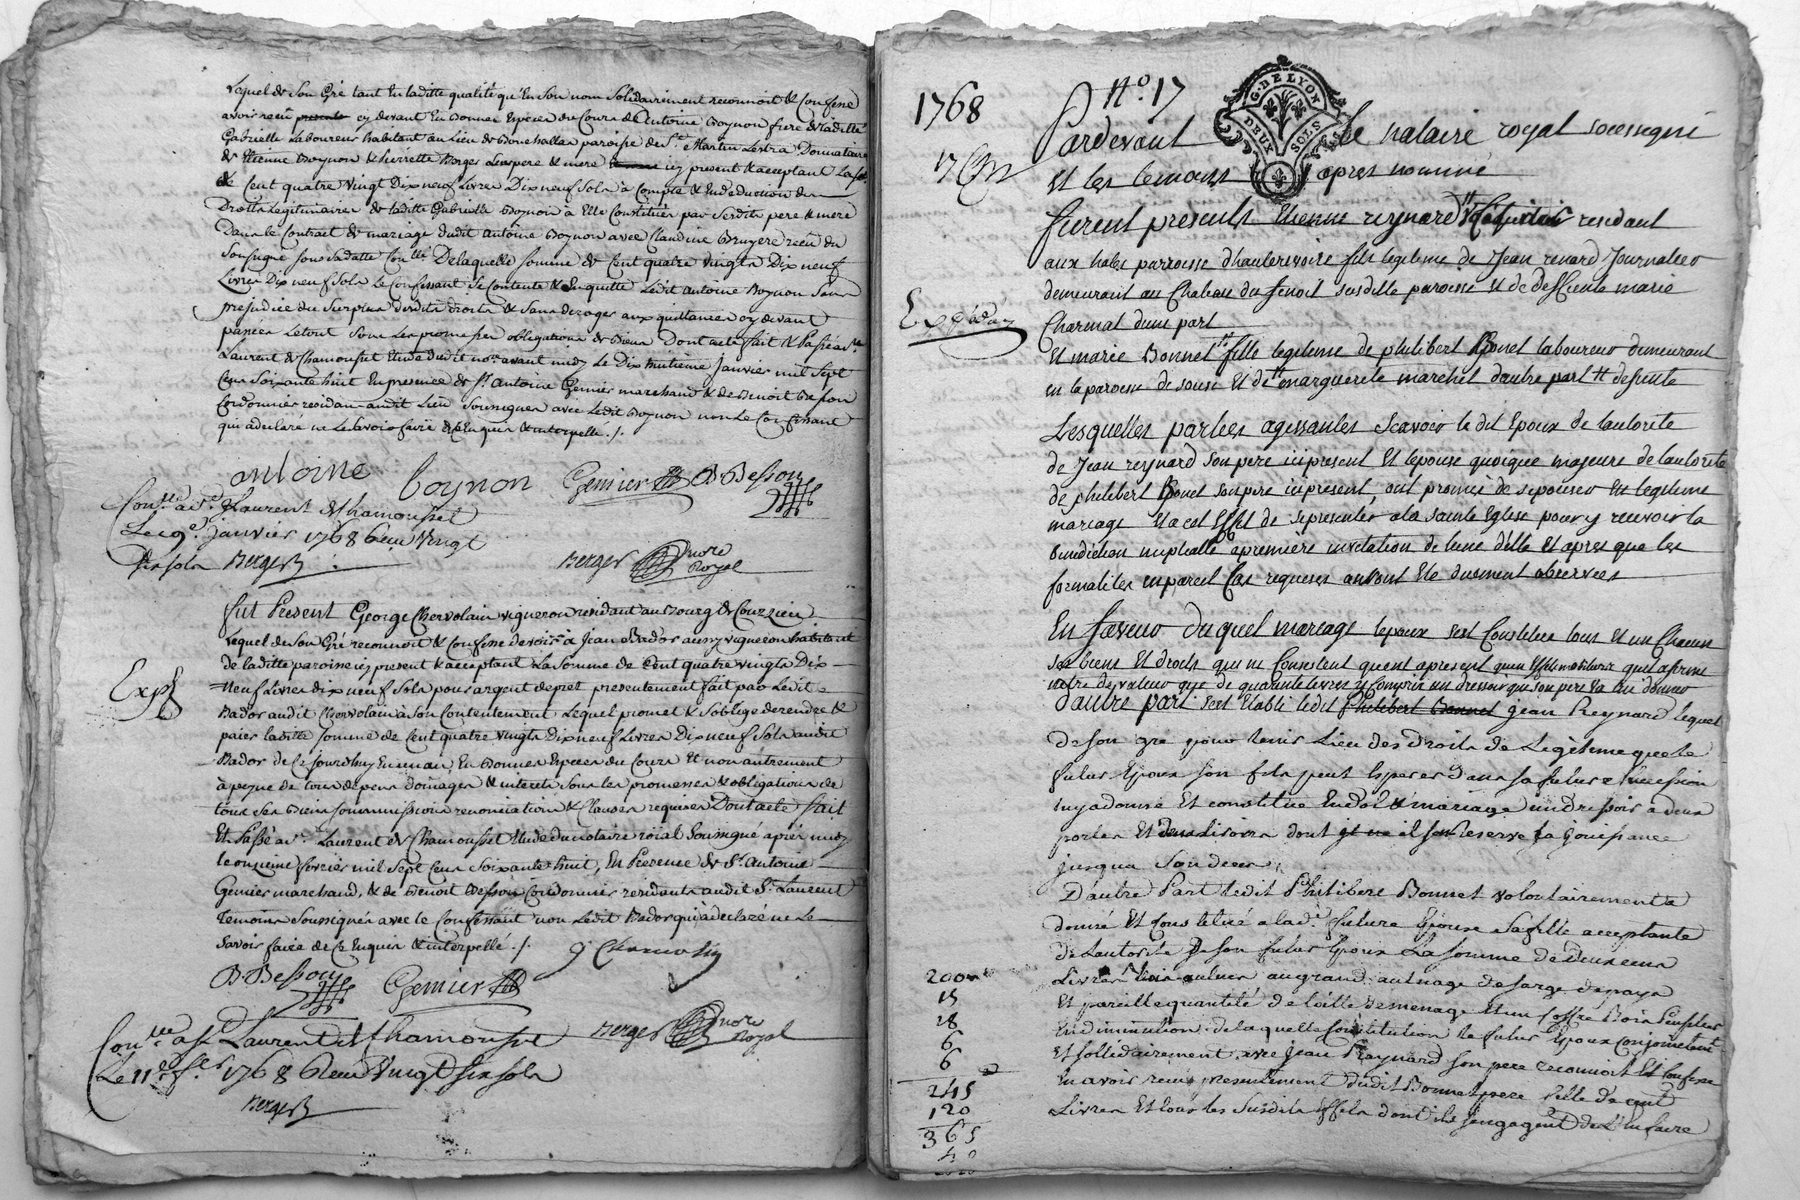 Lequel de Son Gré tant En laditte qualité qu'En Son nom Solidairement reconnoit & Confesse
avoir reçu cy devant En Bonnes Especes du Cours de Antoine Boynon frere de laditte
Gabrielle Laboureur habitant au Lieu de paroisse de St Martin Lestra Donnataire
de Etienne Boynon & pierrette Borges Ses pere & mere icy present & acceptant La so
de Cent quatre Vingt Dix neuf Livres Dix neuf Sols à Compte & En deduction des
Droits Legitimaires de laditte Gabrielle Boynon à Elle Constitués par Sesdits pere & mere
Dans le Contract de mariage dudit Antoine Boynon avec Claudine Bruyere reçu du
Soussigné Sous Sa datte Conllé De laquelle Somme de Cent quatre Vingts Dix neuf
Livres Dix neuf Sols le Confessant Se Contente & En quitte Ledit Antoine Boynon Sans
prejudice du Surplus desdits droits & Sans deroger aux quittances cy devant
passées Le tout Sous Les promesses obligations de Biens Dont acte fait & Passé à St
Laurent de Chamousset Etude dudit nore avant midy Le Dix huitieme Janvier mil Sept
Cens Soixante huit En presence de Sr Antoine Gemier marchand & de Benoit Besson
Cordonnier residans audit Lieu Soussignés avec Ledit Boynon non Le Confessant
qui a declaré ne Le Savoir faire de ce Enquis & interpellé ./.
antoine boynon Gemier B Besson
Conllé à St Laurent de Chamousset
Le 19e Janvier 1768 Reçu Vingt
Six sols Berger
Berger nore Royal
Fut Present George Chervolain vigneron residant au Bourg de Courzieu
Lequel de Son Gré reconnoit & Confesse devoir à Jean Bador aussy vigneron habitant
de laditte paroisse icy present & acceptant La Somme de Cent quatre vingts Dix
Expé
neuf Livres dix neuf Sols pour argent de pret presentement fait par Ledit
Bador audit Chervolain à Son Contentement Lequel promet & S'oblige de rendre &
paier laditte Somme de Cent quatre Vingts Dix neuf Livres Dix neuf Sols audit
Bador de Ce Jourd'huy En un an, En Bonnes Especes du Cours Et non autrement
à peyne de tous depens domages & interets Sous Les promesses & obligations de
tous Ses Biens Soummissions renonciations & Clauses requises Dont acte fait
Et Passé à St Laurent de Chamousset Etude du notaire roial Soussigné après midy
Le onzieme fevrier mil Sept Cens Soixante huit, En Presence de Sr Antoine
Gemier marchand, & de Benoit Besson Cordonnier residants audit St Laurent
Temoins Soussignés avec le Confessant non Ledit Bador qui a declaré ne Le
Savoir faire de Ce Enquis & interpellé ./.
B Besson Gemier
Conllé à St Laurent de Chamousset
Le 11e fer 1768 Reçu Vingt Six sols
Berger
Berger nore Royal
1768
No 17
G. DE LYON
DEUX SOLS
Pardevant le notaire royal soussigné
et les temoins apres nommé
furent presents Etienne reynard residant
aux hales parroisse d'hauterivoire fils legitime de Jean renard Journalier
demeurant au Chateau du fenoil susditte paroisse et de deffunte marie
Charmat d'une part
Expédié
et marie Bonnet fille legitime de philibert Bonet laboureur demeurant
en la paroisse de souse et de marguerite marchet d'autre part defunte
Lesquelles parties agissantes Scavoir le dit Epoux de l'autorité
de Jean reynard son pere ici present et l'epouse quoique majeure de l'autorité
de philibert Bonet son pere ici present, ont promis de s'epouser en legitime
mariage et a cet Effet de se presenter a la sainte Eglise pour y recevoir la
benediction nuptialle a premiere invitation de l'une d'elle et apres que les
formalites en pareil Cas requises auront Eté duement observées
En faveur duquel mariage l'epoux s'est Constitué tous et un Chacun
ses biens et droits qui ne Consistent quent apresent qu'en effets mobiliers qu'il afirme
n'etre de valeur que de quarante livres y Compris un dressoir que son pere va lui donner
d'autre part s'est Etabli ledit Philibert Bonnet Jean Reynard lequel
de son gré pour tenir Lieu des droits de Legitime que le
futur Epoux son fils peut Esperer dans sa future Succession
luy a donné Et constitué En dot & mariage un dressoir a deux
portes Et deux tiroirs dont il se Reserve la Jouissance
jusqua Son deces
D'autre Part ledit Philibert Bonnet volontairement a
donné Et Constitué a lade future Epouse Sa fille acceptante
de Lautorité de son futur Epoux La somme de deux cens
Livres aulnes au grand aulnage de sarge de pays
Et pareille quantité de toille de menage Et un coffre Bois
En diminution de laquelle Constitution le futur Epoux conjointement
Et sollidairement avec Jean Reynard son pere reconnoit Et Confesse
En avoir reçu presentement dudit Bonnet pere Celle de cent
Livres Et tous les Susdits Effets dont ils s'engagent de L'En faire
200
15
28
6
6
245
120
365
40